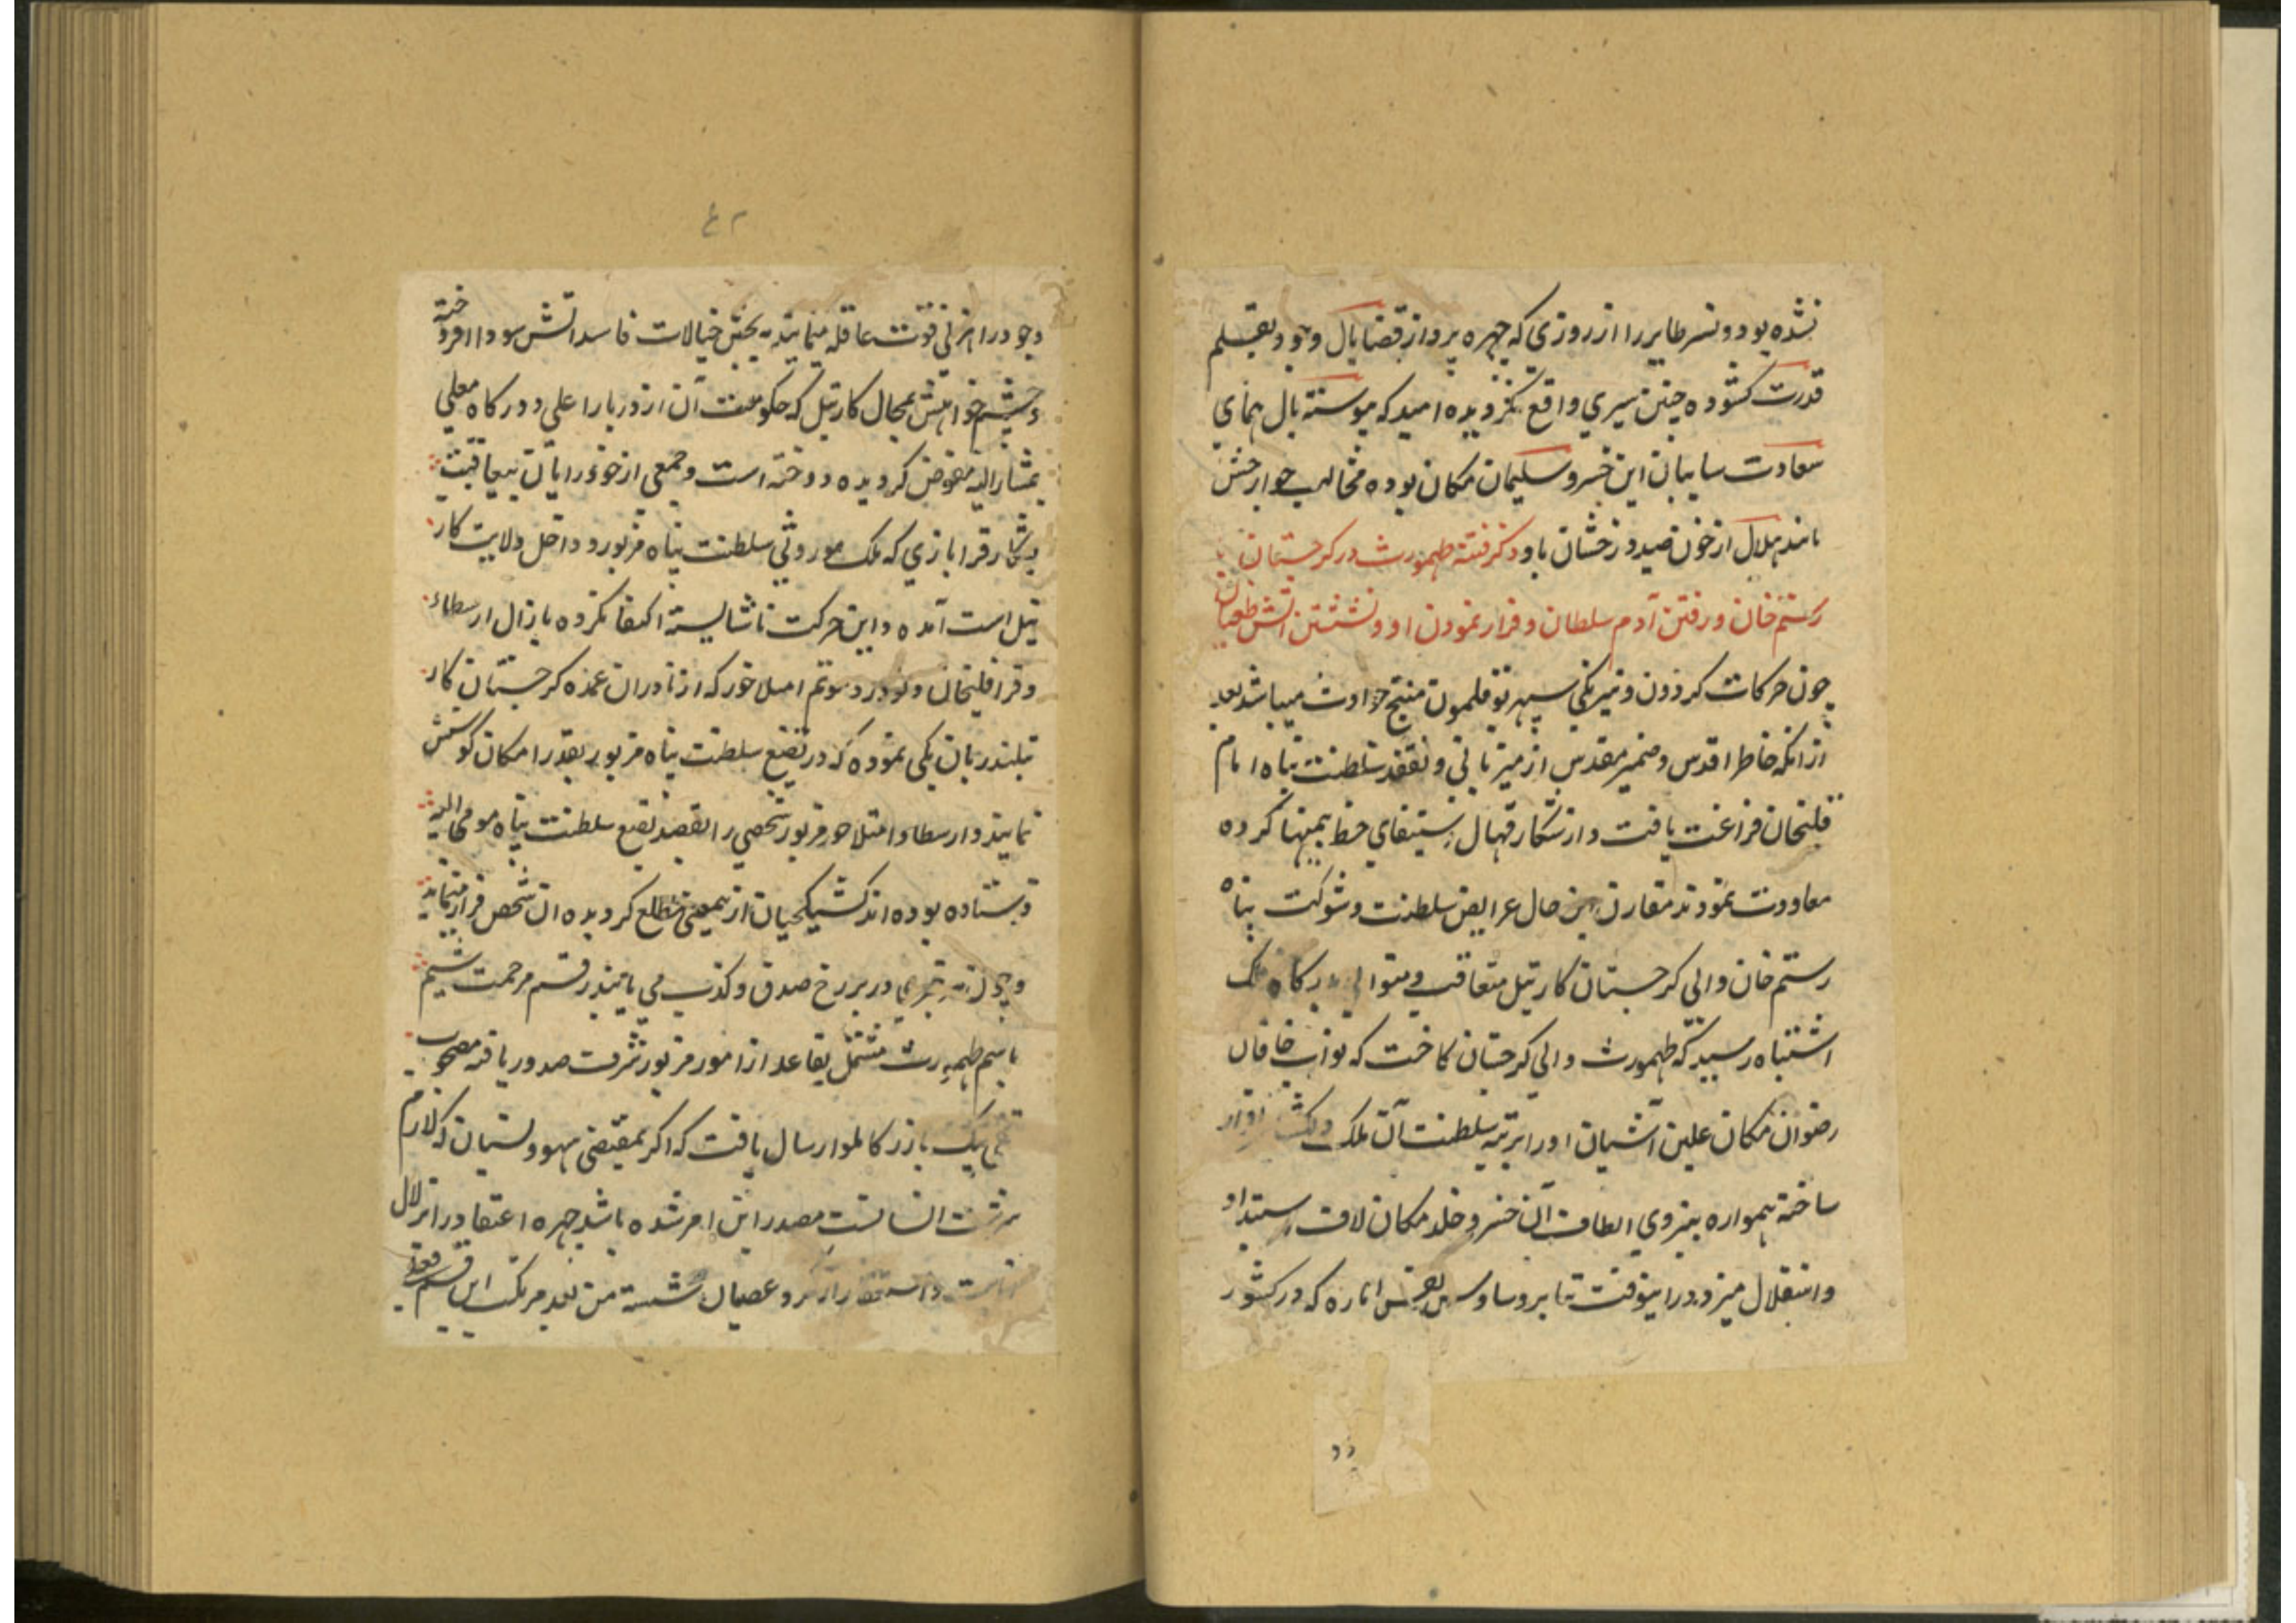 نشده بود و نسر طایر را از روزی که چهره پرداز قضا بال وجود بقلم
قدرت کشوده چنین سیری واقع نکردیده امید که پیوسته بال همای
سعادت سایبان این خسرو سلیمان مکان بوده مخالب جوارحش
مانند هلال از خون صید درخشان باد ذکر فتنه طهمورث در کرجستان
رستم خان و رفتن آدم سلطان و فرار نمودن او و نشستن آتش طغیان
چون حرکات کردون و نیرنکی سپهر بوقلمون منتج حوادث میباشد بعد
از آنکه خاطر اقدس و ضمیر مقدس از میزبانی و تفقد سلطنت پناه امام
قلیخان فراغت یافت و از شکار قهال استیفای حظ بمنتها کرده
معاودت نمودند مقارن این حال عرایض سلطنت و شوکت پناه
رستم خان والی کرجستان کارتیل متعاقب و متوالی بدرکاه فلک
اشتباه رسید که طهمورث والی کرجستان کاخت که نواب خاقان
رضوان مکان علیین آشیان او را برتبه سلطنت آن ملک
ساخته همواره بنیروی الطاف آن خسرو خلد مکان لاف استبداد
و استقلال میزد در اینوقت بنا بر وساوس نفس اماره که در کشور
۴۲
وجود راهزنی قوت عاقله مینماید پختن خیالات فاسد آتش سودا افروخته
و چشم خواهش بمحال کارتیل که حکومت آن از دربار اعلی و درکاه معلی
بمشارالیه مفوض کردیده دوخته است و جمعی از خودرایان بیعاقبت
بشکار قرابازی که ملک موروثی سلطنت پناه مزبور و داخل ولایت کار
تیل است آمده و این حرکت ناشایسته اکتفا نکرده بازال ارسطاء
و قراقلیخان و نودر و سوتم امیلاخور که از نادران عمده کرجستان کار
تیلند زبان یکی نموده که در تضیع سلطنت پناه مزبور بقدر امکان کوشش
نمایند و ارسطا و امیلاخور مزبور شخصی را بقصد تضیع سلطنت پناه مومی الیه
فرستاده بوده اند کشیکچیان از این معنی مطلع کردیده آن شخص فرار مینماید
و چون در هر رخ صدق و کذب می باشد رقم مرحمت شیم
باسم طهمورث مشتمل بقاعد از امور مزبور شرف صدور یافته مصحوب
بیک بازرکالملو ارسال یافت که اکر بمقتضی سهو و نسیان که لازم
سرشت انسانیت مصدر این امر شده باشد چهره اعتقاد را بزلال
ندامت و استغفار از کرد عصیان شسته من بعد مرتکب این قسم